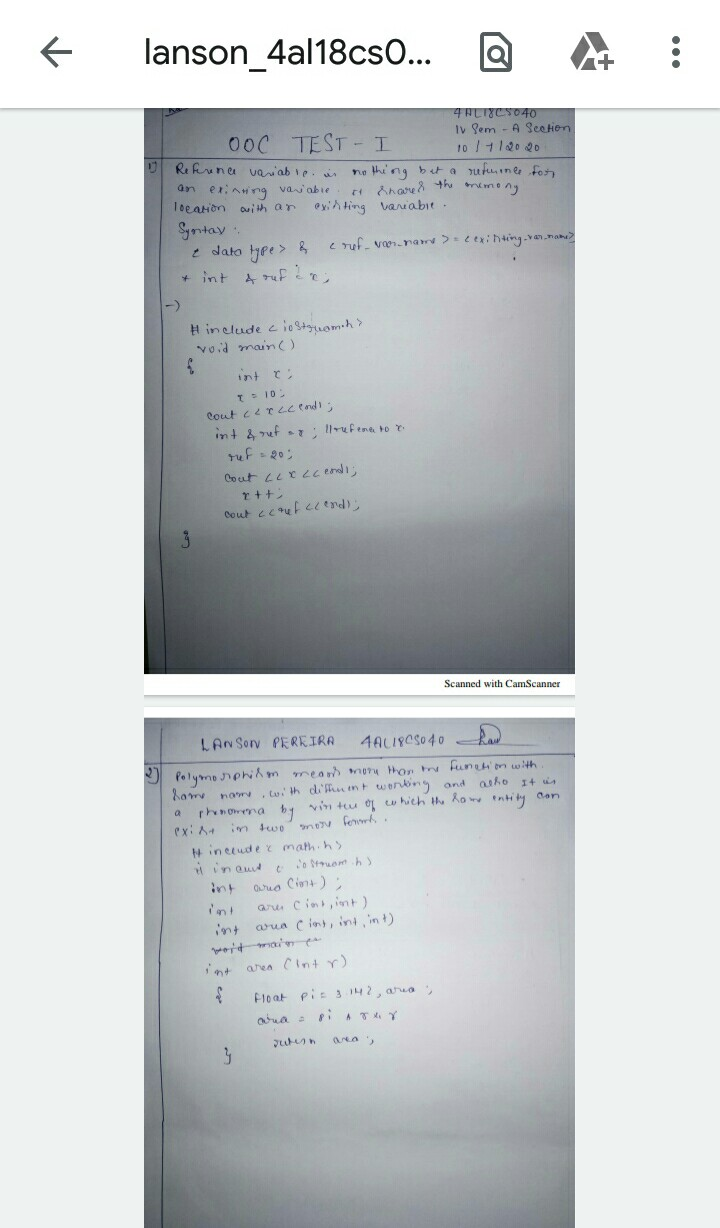 lanson_4al18cs0...
4AL18CS040
IV Sem - A Section
OOC TEST - I
10/7/2020
1) Reference variable. is nothing but a reference for
an existing variable. It shares the memory
location with an existing variable.
Syntax :.
< data type> & < ref_var_name > = <existing_var_name>
* int & ref = x;
→
# include < iostream.h>
void main()
{
int x;
x = 10;
cout <<x<<endl;
int & ref = x; // reference to x.
ref = 20;
cout << x <<endl;
x++;
cout <<ref <<endl;
}
Scanned with CamScanner
LANSON PEREIRA 4AL18CS040
2) Polymorphism means more than one function with
same name. with different working and also It is
a phenomena by virtue of which the same entity can
exist in two more forms.
# include < math.h>
# include < iostream.h>
int area (int);
int area (int, int)
int area (int, int, int)
void main
int area (int r)
{
float pi = 3.142, area ;
area = pi * r * r
return area ;
}